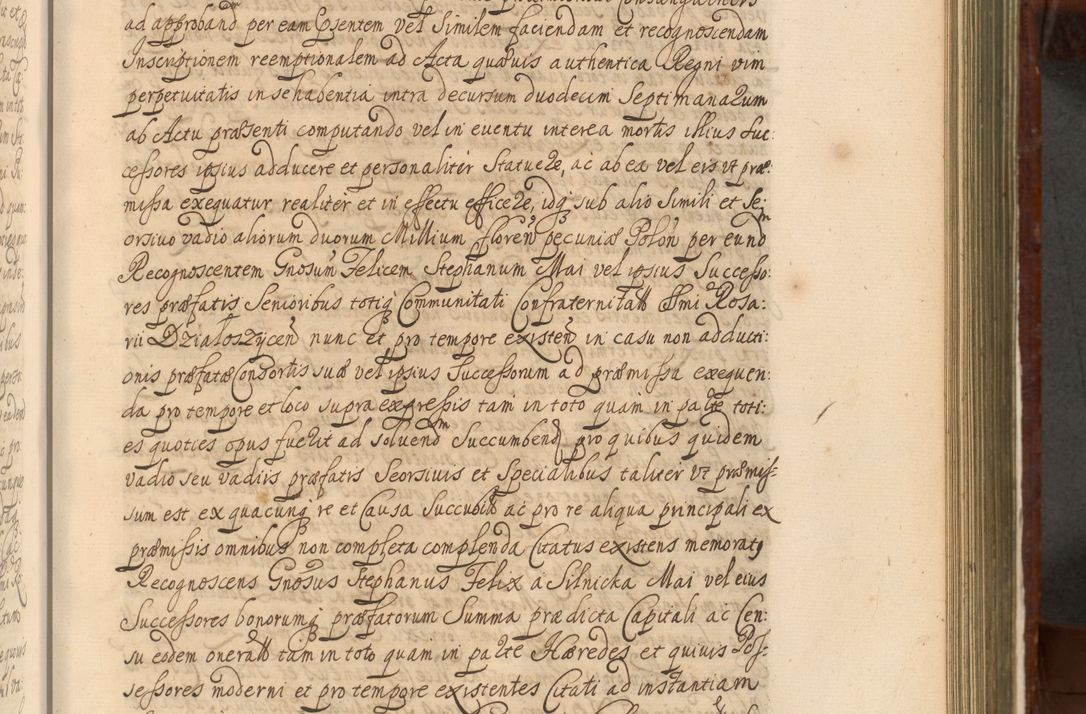 ad approband per eam Psentem vel Similem faciendam et recognoscendam
Inscriptionem reemptionalem ad Acta quævis authentica Regni vim
perpetuitatis in se habentia intra decursum duodecim Septimanarum
ab Actu præsenti computando vel in eventu interea mortis illius Suc:
cessores ipsius adducere et personaliter Statuere, ac ab ea vel eis vt præ:
missa exequatur realiter et in effectu efficere, idq sub alio Simili et Se:
orsivo vadio aliorum duorum Millium floren pecuniæ Polon per eund
Recognoscentem Gnosum Felicem Stephanum Mai vel ipsius Successo:
res præfatis Senioribus totiq Communitati Confraternitatis Smi Rosa:
rii Działoszycen nunc et pro tempore existen in casu non adducti:
onis præfatæ Consortis suæ vel ipsius Successorum ad præmissa exequen:
da pro tempore et loco supra expressis tam in toto quam in parte toti:
es quoties opus fuerit ad solvend Succumbend pro quibus quidem
vadio seu vadiis præfatis Seorsivis et Specialibus taliter vt præmis-
sum est ex quacunq re et Causa Succubit ac pro re aliqua principali ex
præmissis omnibus non completa complenda Citatus existens memorat9
Recognoscens Gnosus Stephanus Felix a Silnicka Mai vel eius
Successores bonorumq præfatorum Summa prædicta Capitali ac Cen:
su eodem onerat tam in toto quam in parte Hæredes et quivis Pos-
sessores moderni et pro tempore existentes Citati ad instantiam